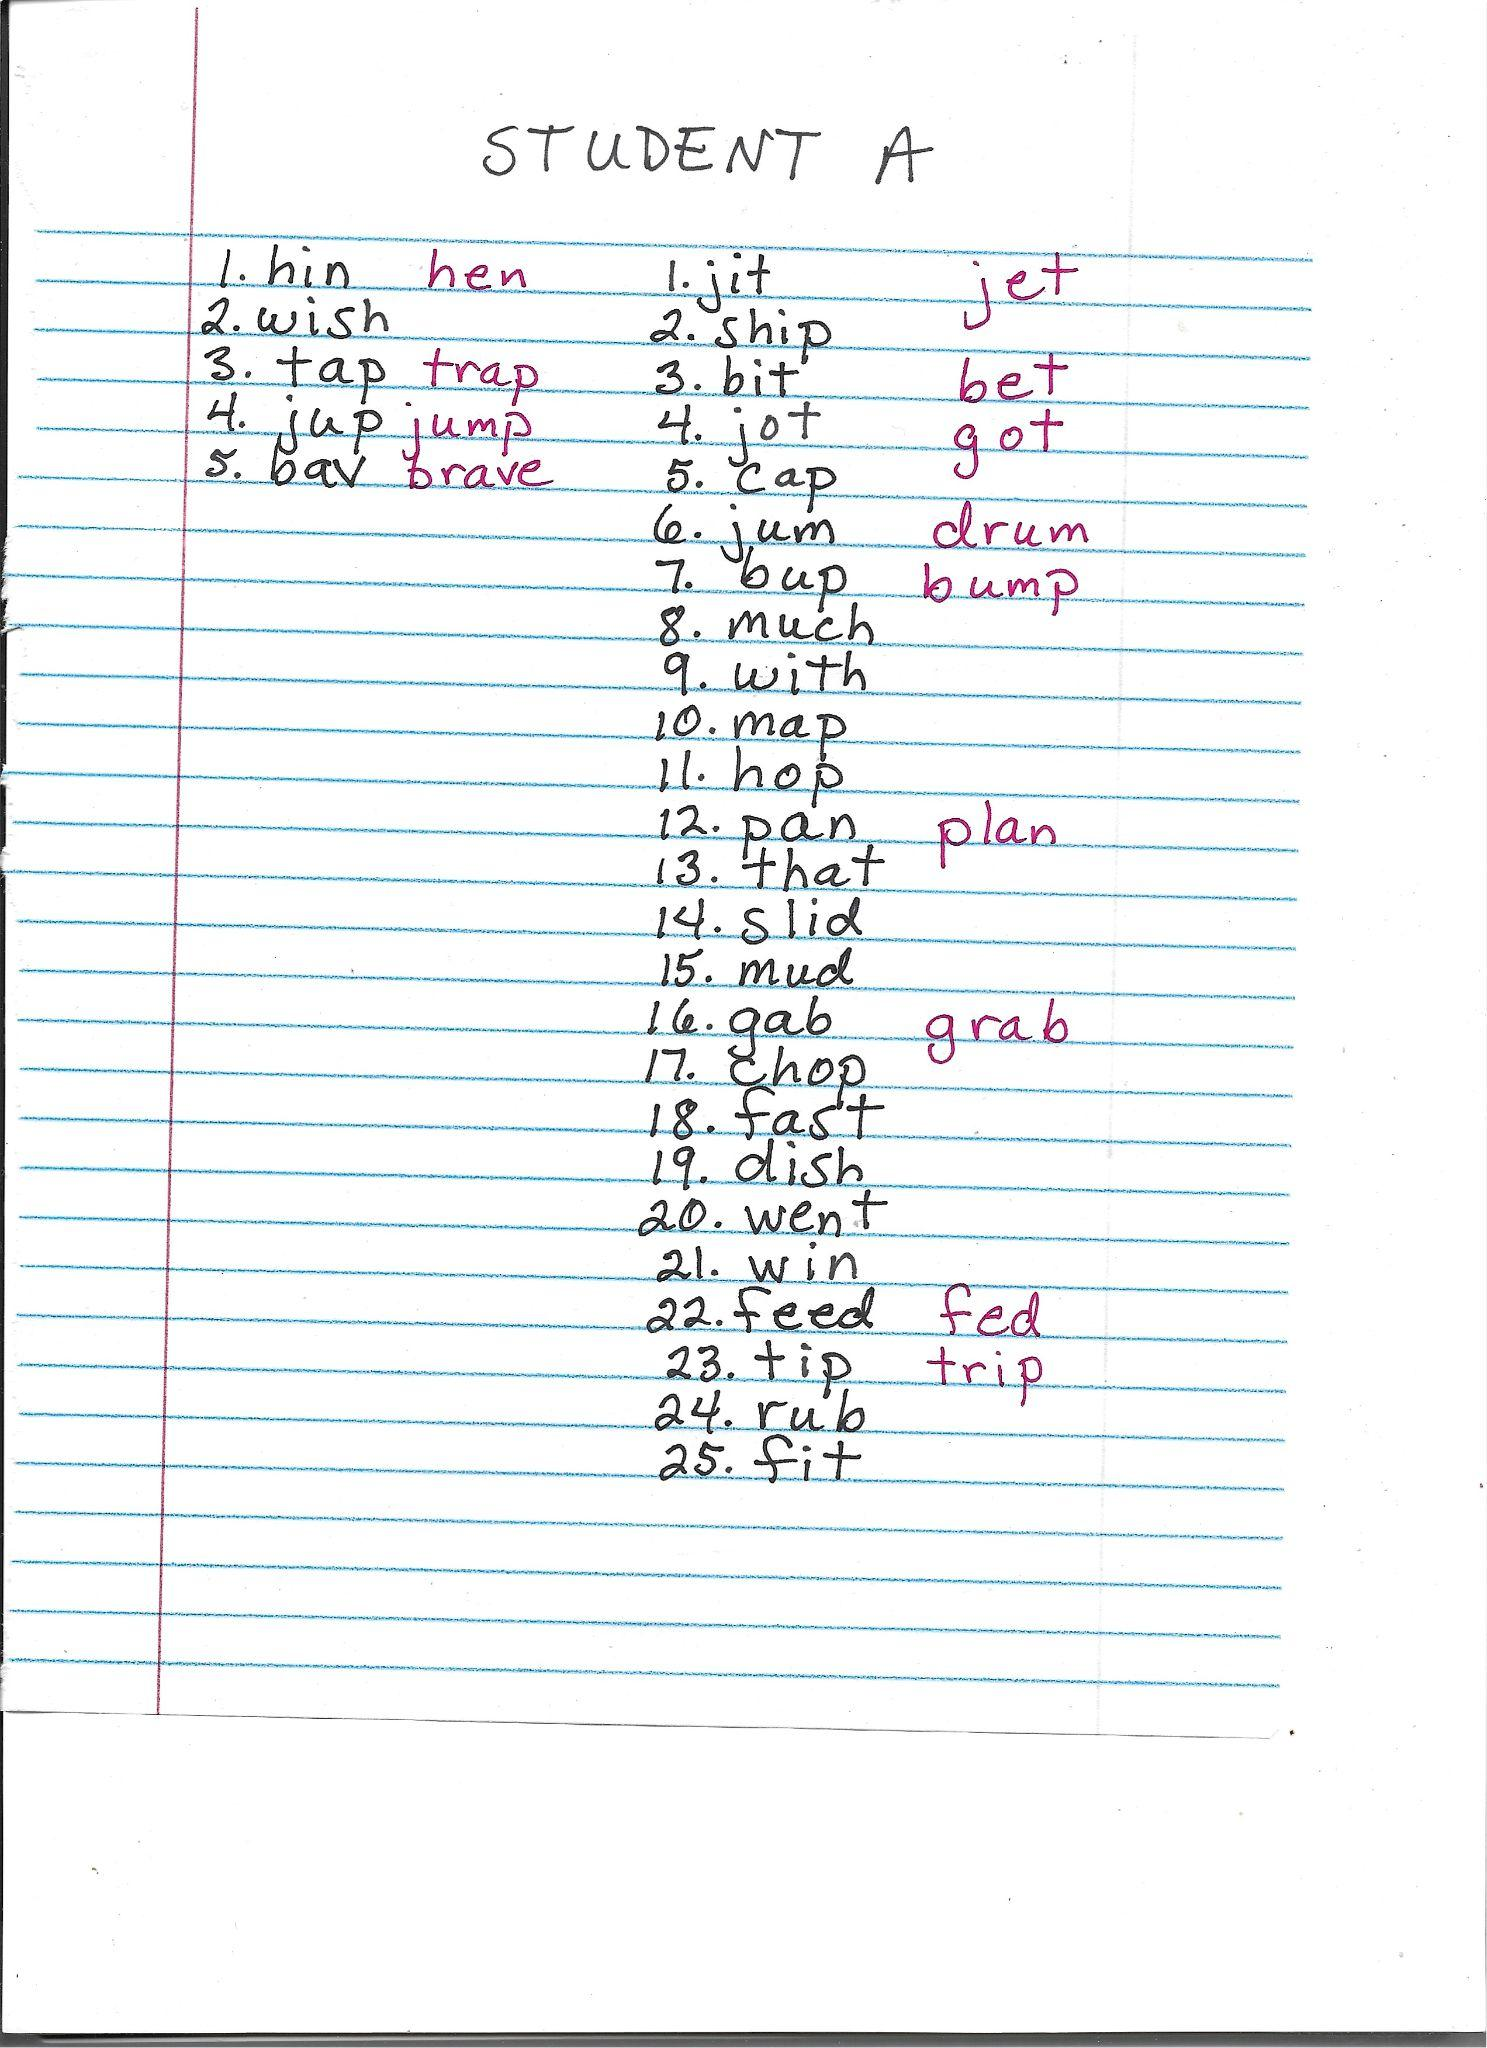 STUDENT A
1. hin hen
2. wish
3. tap trap
4. jup jump
5. bav brave
1. jit jet
2. ship
3. bit bet
4. jot got
5. cap
6. jum drum
7. bup bump
8. much
9. with
10. map
11. hop
12. pan plan
13. that
14. slid
15. mud
16. gab grab
17. chop
18. fast
19. dish
20. went
21. win
22. feed fed
23. tip trip
24. rub
25. fit